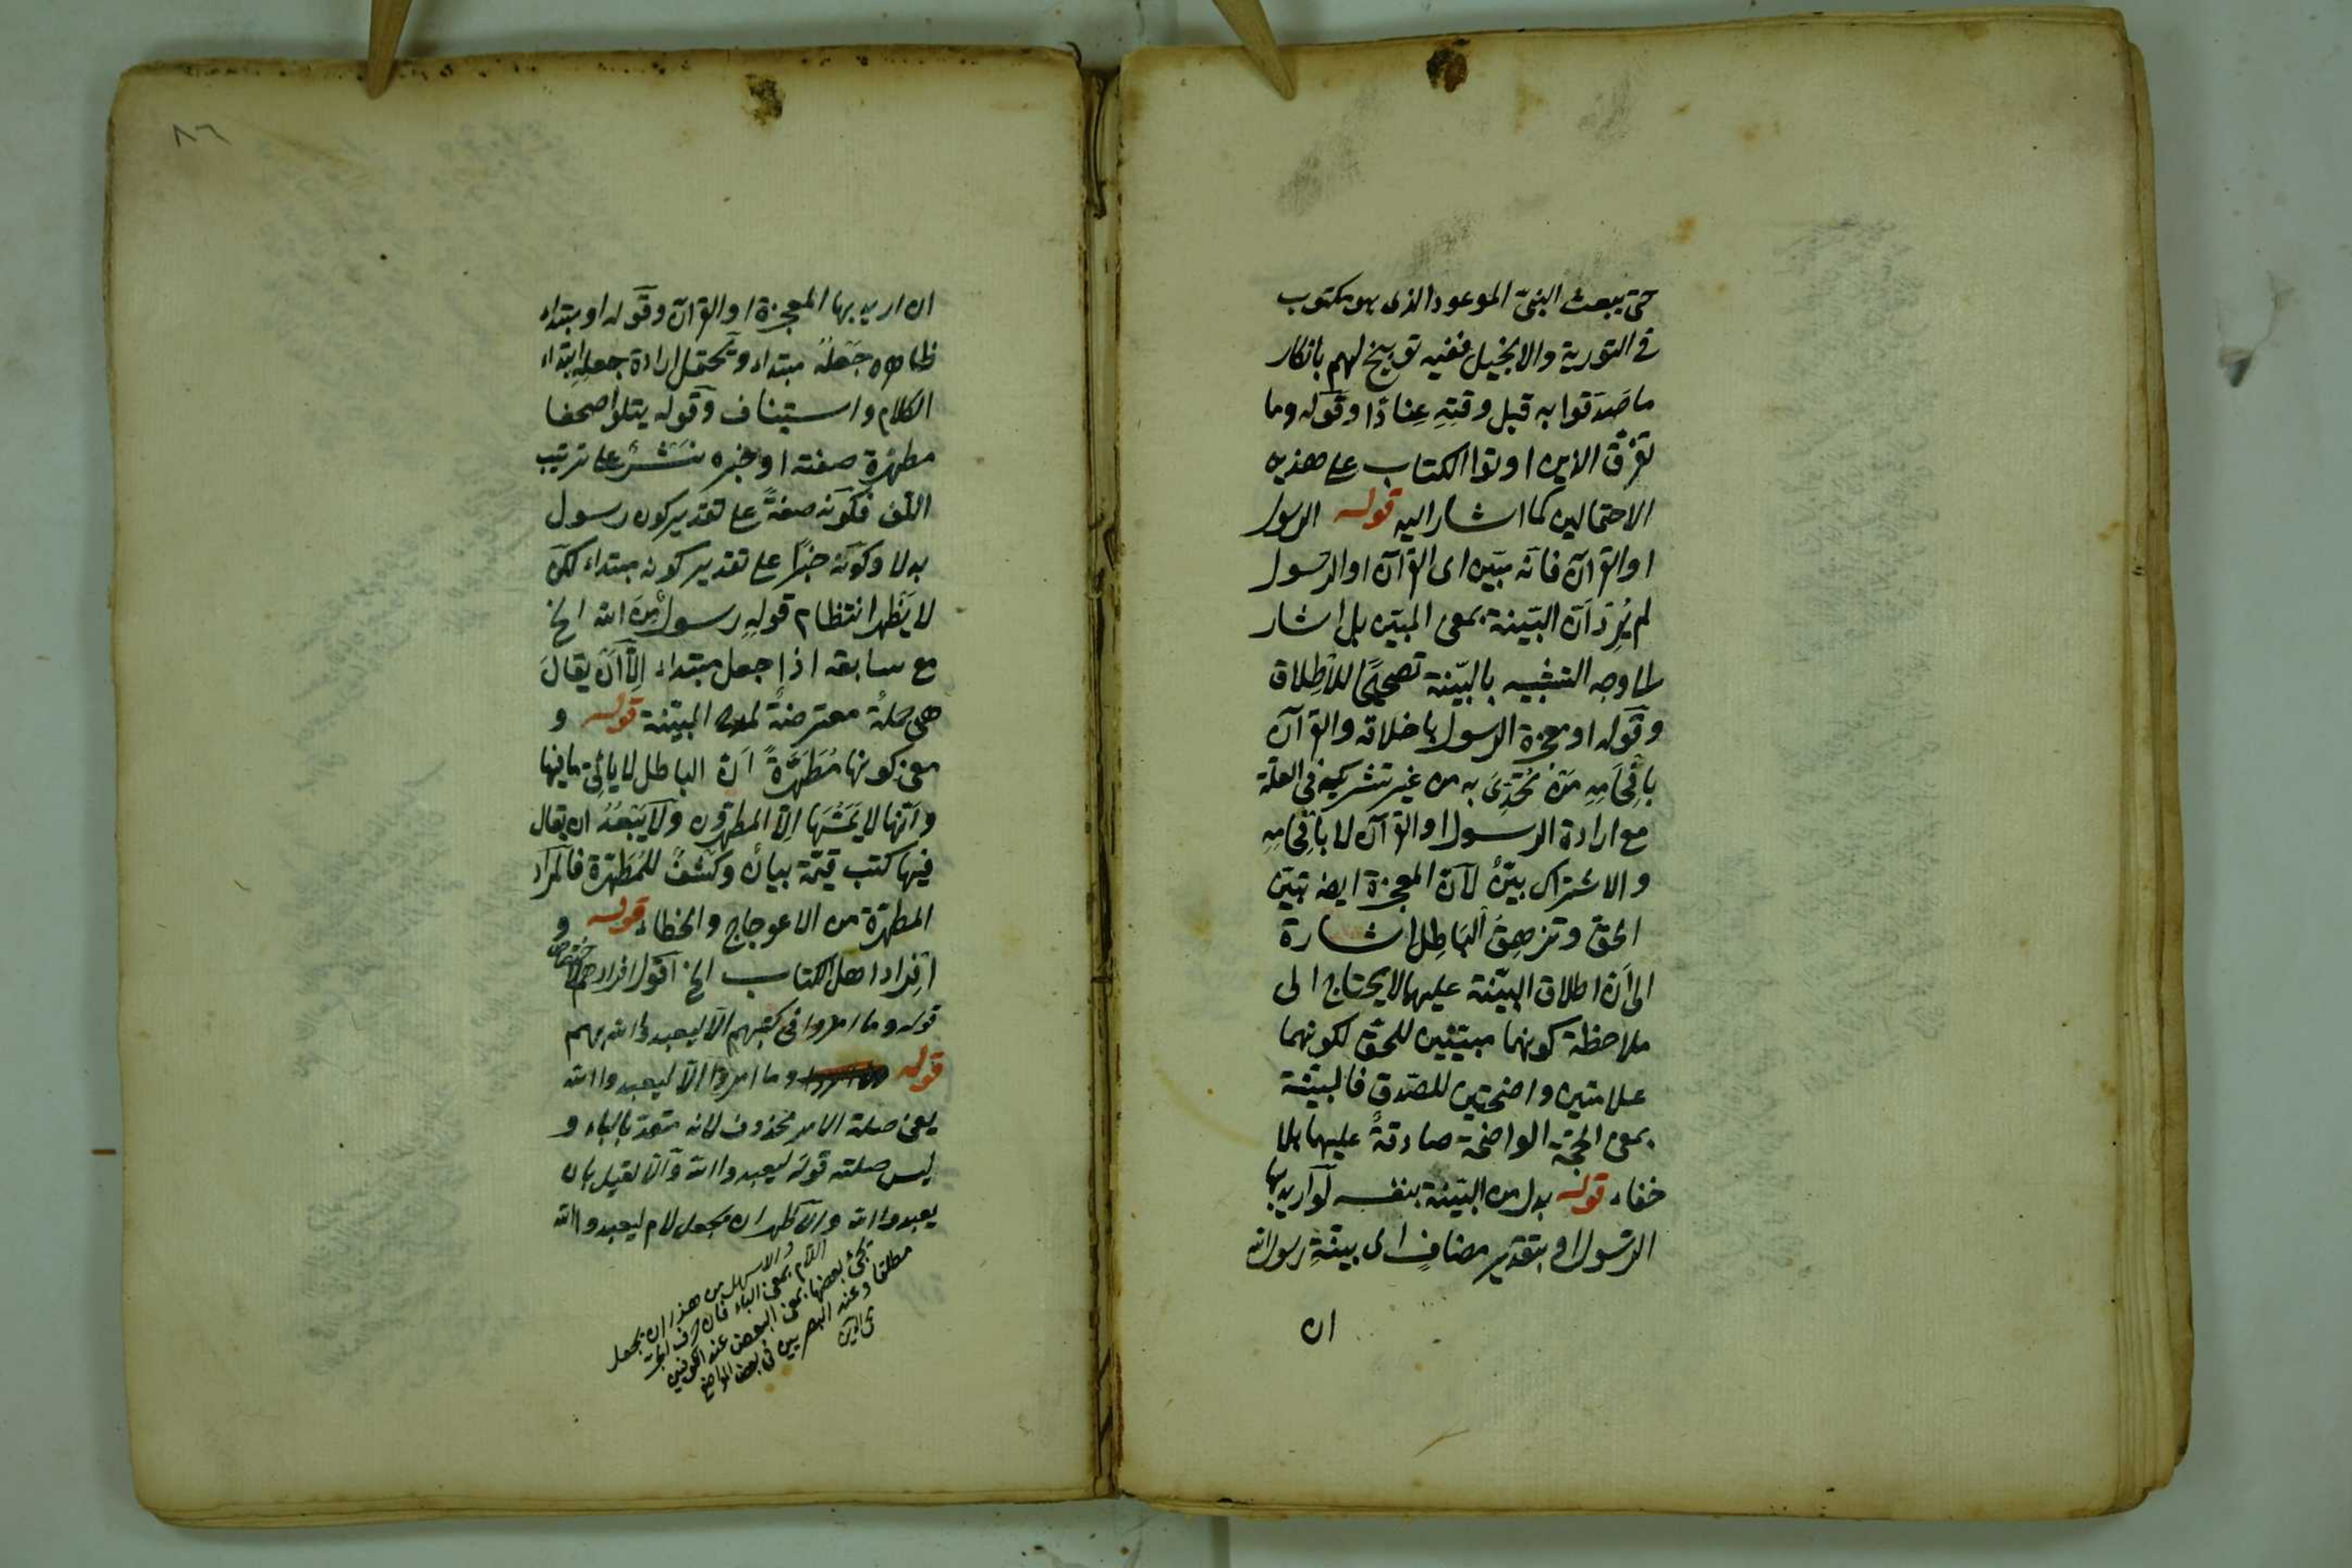 حتى يبعث النبى الموعود الذى هو مكتوب
فى التورية والانجيل ففيه توبيخ لهم بانكار
ما صَدَقوا به قبل وقتِهِ عِنادًا وقوله وما
تفرّق الذين اوتوا الكتاب على هذين
الاحتمالين كما اشار اليه قوله الرسول
او القرآن فانّه مبيّن اى القرآن او الرسول
لم يُرِدْ أنّ البيّنة بمعنى المبيّن بل اشار
الى وجه التشبيه بالبيّنة تصحيحًا للاطلاق
وقوله او معجزة الرسول باخلاقه والقرآن
بافحامِهِ مَن تحدّى به من غير تشريكه فى العلّة
مع ارادة الرسول او القرآن لا بافحامه
والاشتراك بيّنٌ لانّ المعجزة ايضا تبيّن
الحق وتزهِقُ الباطِل اشارة
الى أنّ اطلاق البيّنة عليهما لا يحتاج الى
ملاحظة كونهما مبيّنين للحق لكونهما
علامتين واضحتين للصدق فالبيّنة
بمعنى الحجّة الواضحة صادقةً عليهما بلا
خفاء قوله بدل من البيّنة بنفسه لو اريد بها
الرسول او بتقدير مضافٍ اى بينةِ رسول الله
ان
٨٦
ان اريد بها المعجزة او القرآن وقوله او مبتداء
ظاهره جَعلُهُ مبتداء ويحتمل ارادة جعلِهِ ابتداء
الكلام واستيناف وقوله يتلو صحفا
مطهرة صفته او خبره نَشْرٌ على ترتيب
اللف فكونه صفةً على تقدير كون رسول
بدلا وكونه خبرًا على تقدير كونه مبتداء لكن
لا يَظهر انتظام قولِهِ رسولٌ مِنَ الله الخ
مع سابقه اذا جعل مبتداء اِلّا أنْ يقالَ
هى جملةٌ معترضةٌ لمدح البيّنة قوله و
معنى كونها مُطَهَّرةً أنّ الباطل لا يأتى ما فيها
وأنّها لا يَمَسُّها اِلّا المطهرون ولا يَبْعُدُ ان يقال
فيها كتب قيّمة بيانٌ وكَشفٌ للمُطَهّرة فالمراد
المطهرّة من الاعوجاج والخطاء قوله و
افراد اهل الكتاب الخ اقول افرادهم لاختصاص
قوله وما امروا فى كتبهم الّا ليعبدوا الله بهم
قوله وما امروا الّا ليعبدوا الله
يعنى صلة الامر محذوف لانه متعد بالباء و
ليس صلته قوله ليعبدوا الله والّا لقيل بان
يعبدوا الله والاظهر ان يجعل لام ليعبدوا الله
والاسهل من هذا ان يجعل
اللام بمعنى الباء فان حرف الجر
يجئ بعضها بمعنى البعض عند الكوفيين
مطلقا وعند البصريين فى بعض المواضع